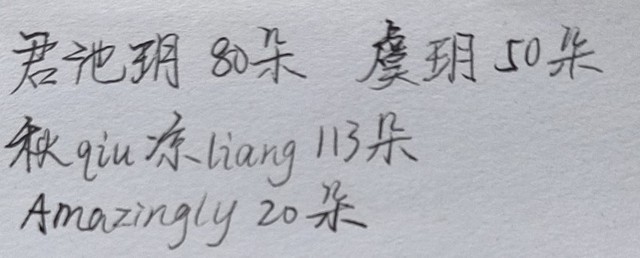 君池玥 80朵 虞玥 50朵
秋qiu凉liang 113朵
Amazingly 20朵